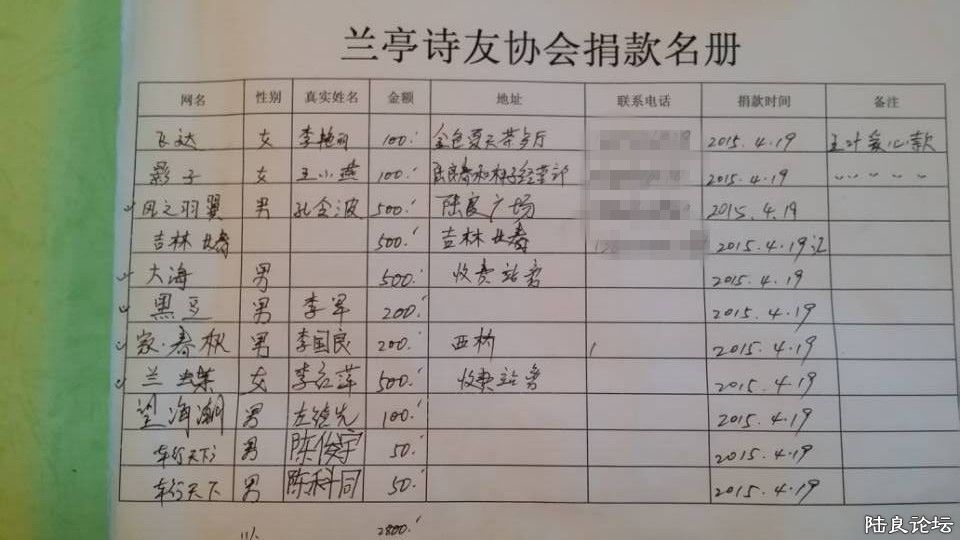 兰亭诗友协会捐款名册
网名 性别 真实姓名 金额 地址 联系电话 捐款时间 备注
飞达 女 李艳 100.- 金色夏天茶餐厅 2015.4.19 爱心款
影子 女 王小燕 100.- 经营部 2015.4.19 〃 〃 〃 〃
风之羽翼 男 孔令波 500.- 陆良广场 2015.4.19
吉林 500.- 吉林 2015.4.19汇
大海 男 500.- 收费站旁 2015.4.19
黑豆 男 李军 200.- 2015.4.19
家·春秋 男 李国良 200.- 西桥 2015.4.19
兰 蝶 女 李红萍 500.- 收费站旁 2015.4.19
望海潮 男 左德先 100.- 2015.4.19
车行天下 男 陈俊宇 50.- 2015.4.19
车行天下 男 陈科同 50.- 2015.4.19
2800.-
陆良论坛